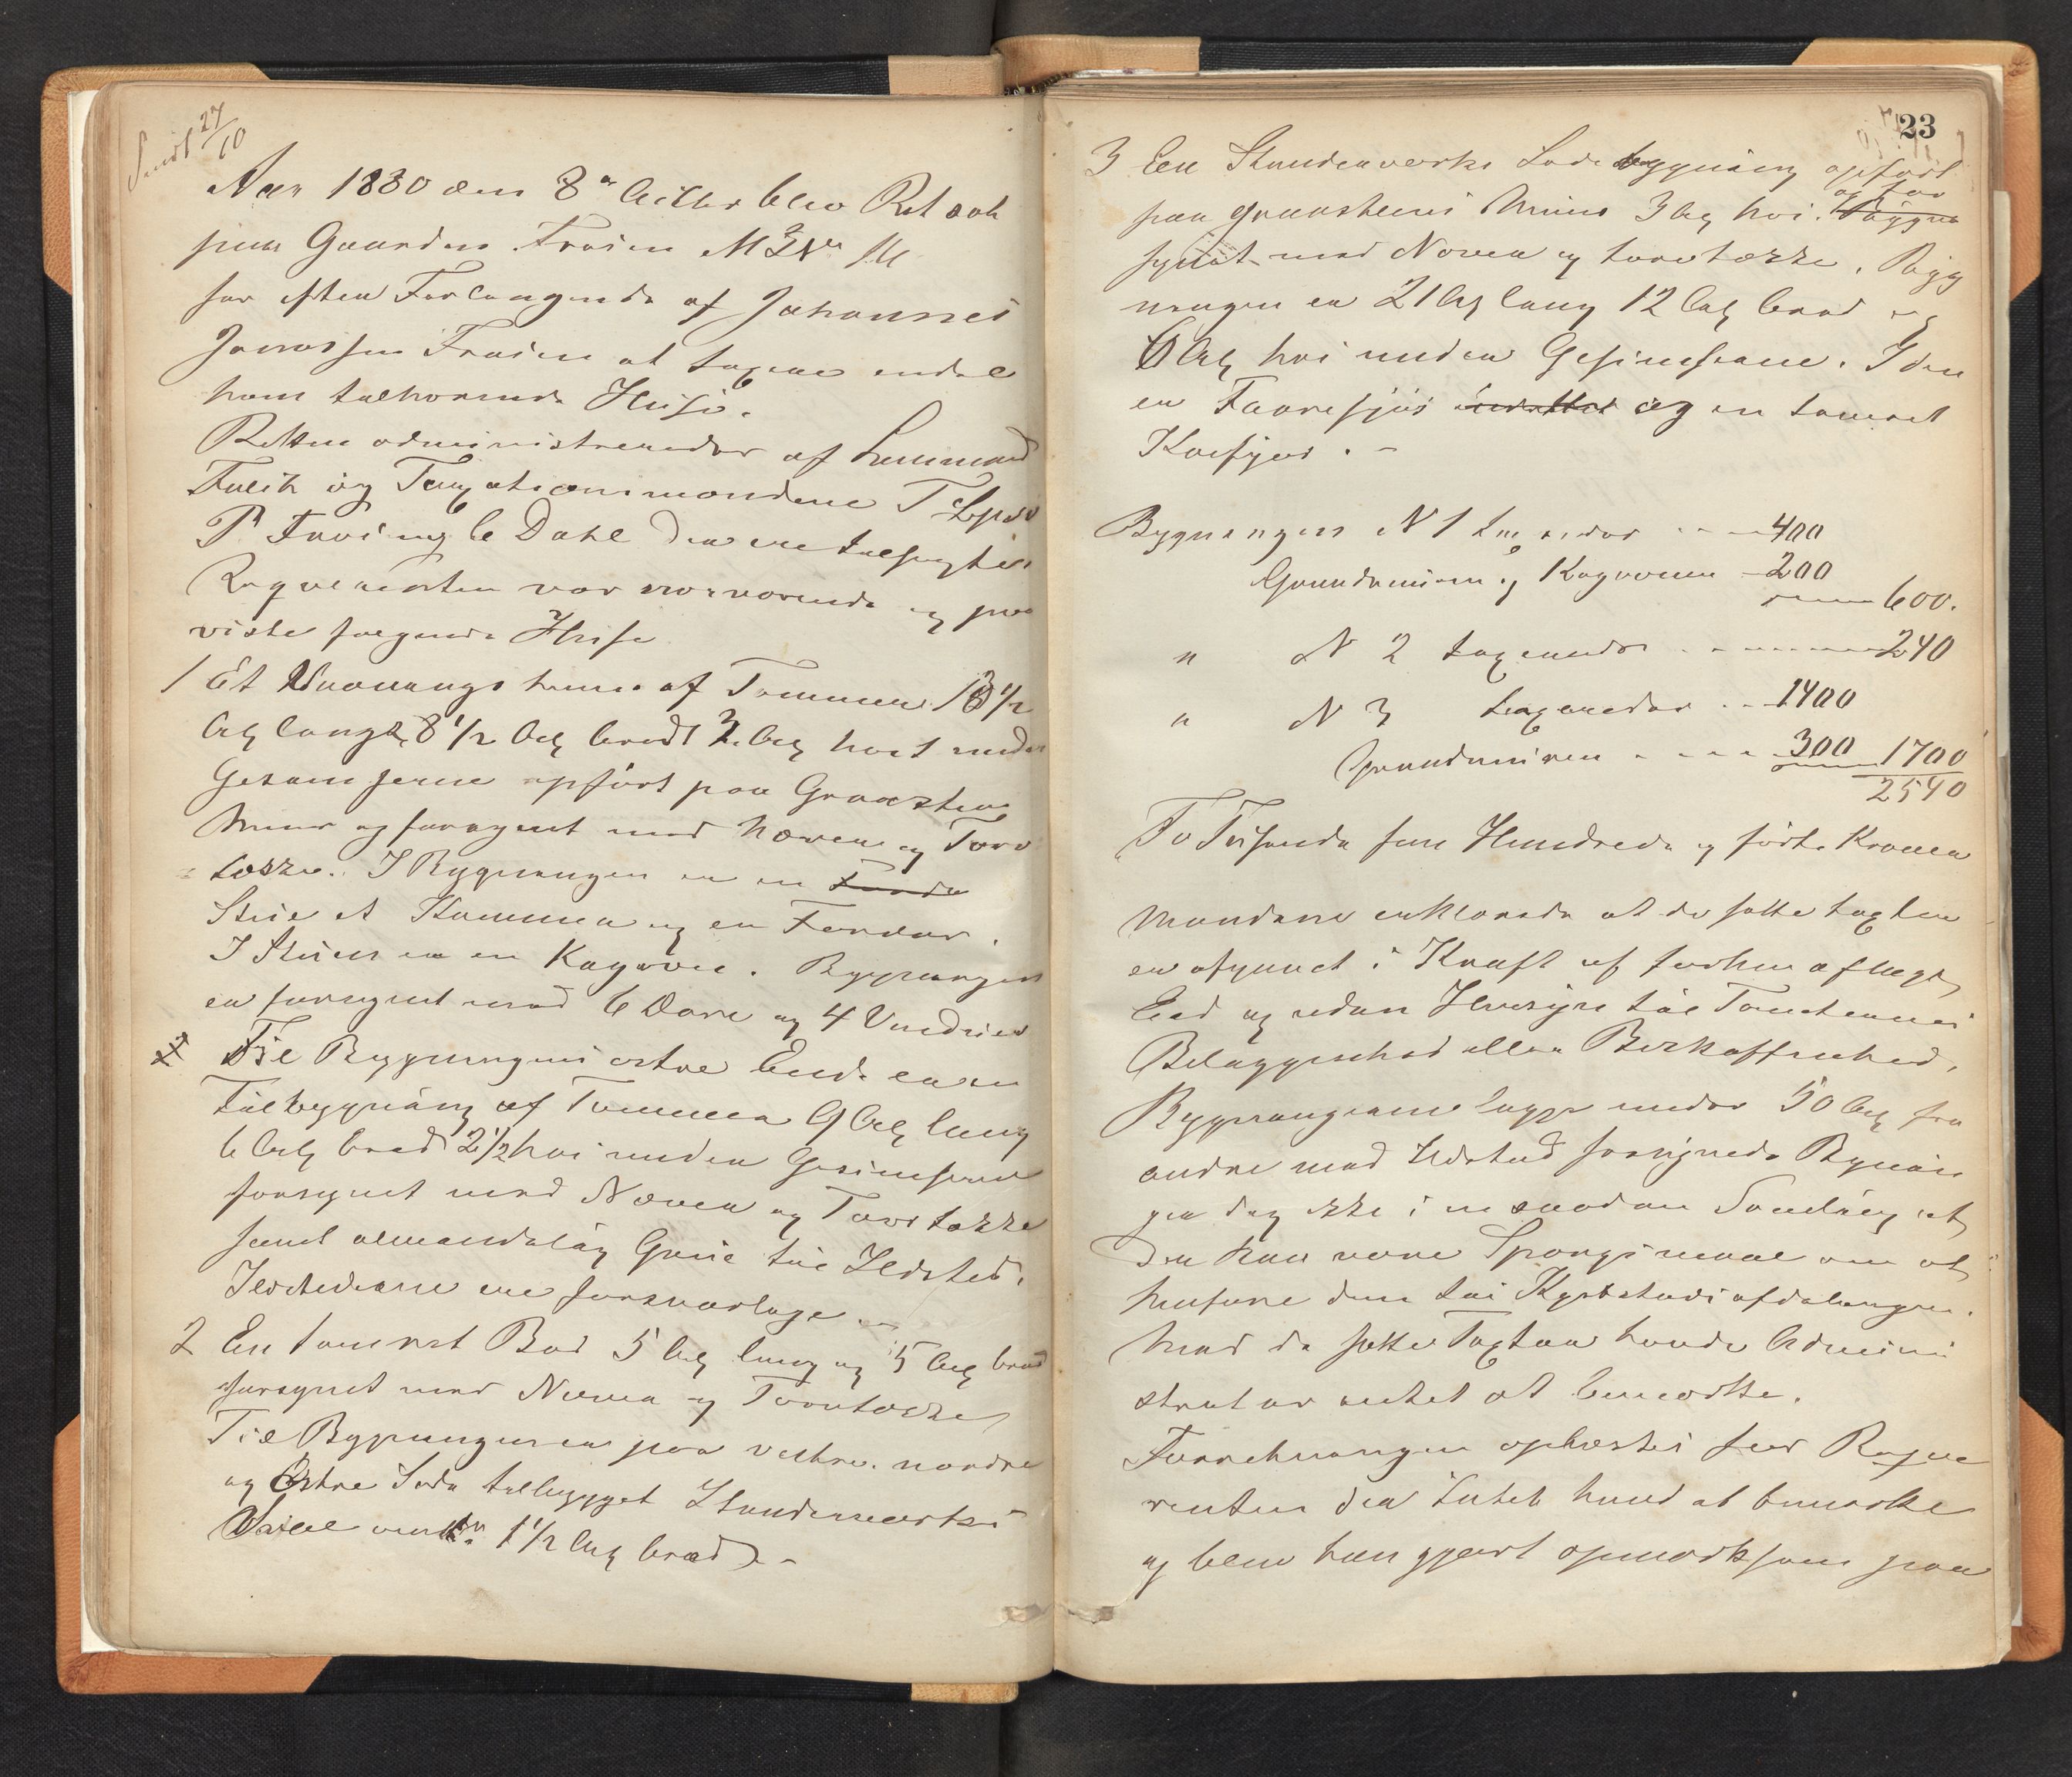 Sendt 27/10
Aar 1880 den 8de October blev Ret sat
paa Gaarden Frøien M
for efter Forlangende af Johannes
Jonassen Frøien at taxere endel
ham tilhørende Huse.
Retten administreredes af Lensmand
Falch og Taxationsmændene T
P og C Dahl
Requirenten var nærværende og paa
viste følgende Huse
1 Et Vaaningshuus af Tømmer 13 1/2
Al langt, 8 1/2 Al bredt 3 Al høit under
Gesimserne opført paa Graastens
Muur og forsynet med Næver og Torv
tække. I Bygningen er en
Stue et Kammer og en Fordør.
I Stuen er en Kagovn. Bygningen
er forsynet med 6 Døre og 4 Vinduer
Til Bygningens østre Ende er en
Tilbygning af Tømmer 9 Al lang
6 Al bred 2 1/2 høi under Gesimserne
forsynet med Næver og Torvtække
samt almindelig Grue til Ildsted.
Ildstederne ere forsvarlige.
2 En tømret Bod 5 Al lang og 5 Al bred
forsynet med Næver og Torvtække
Til Bygningen er paa vestre nordre
og Østre Side tilbygget Standerværks
1 1/2 Al bred. -
23
3 En Standerværks Ladebygning opført
paa Graasteens Muur 3 Al høi. Bygne og for
synet med Næver og torvtække. Byg
ningen er 21 Al lang 12 Al bred og
6 Al høi under Gesimserne. I den
er Faaresjøs indrettet og en tømret
Kosjøs. -
Bygningen N 1 taxeredes - - 400
Grundmuren og Kagovnen - 200
600.
" N 2 taxeredes - - - 240
" N 3 taxeredes - - 1400
Grundmuren - - - 300 1700
2540
To Tusinde fem Hundrede ogførti Kroner
Mændene erklærede at de satte taxten
er afgivet i Kraft af forhen aflagt
Eed og uden Hensyn til Tomternes
Beliggenhed eller Beskaffenhed.
Bygningerne ligge under 50 Al fra
andre med Ildsted forsynede Bygnin
ger dog ikke i en saadan Samling at
der kan være Spørgsmaal om at
henføre dem til Kjøbstadsafdelingen.
Mod de satte Taxter havde Admini
strator intet at bemærke.
Forretningen oplæstes for Requi
renten der Intet havde at bemærke
og blev han gjort opmærksom paa